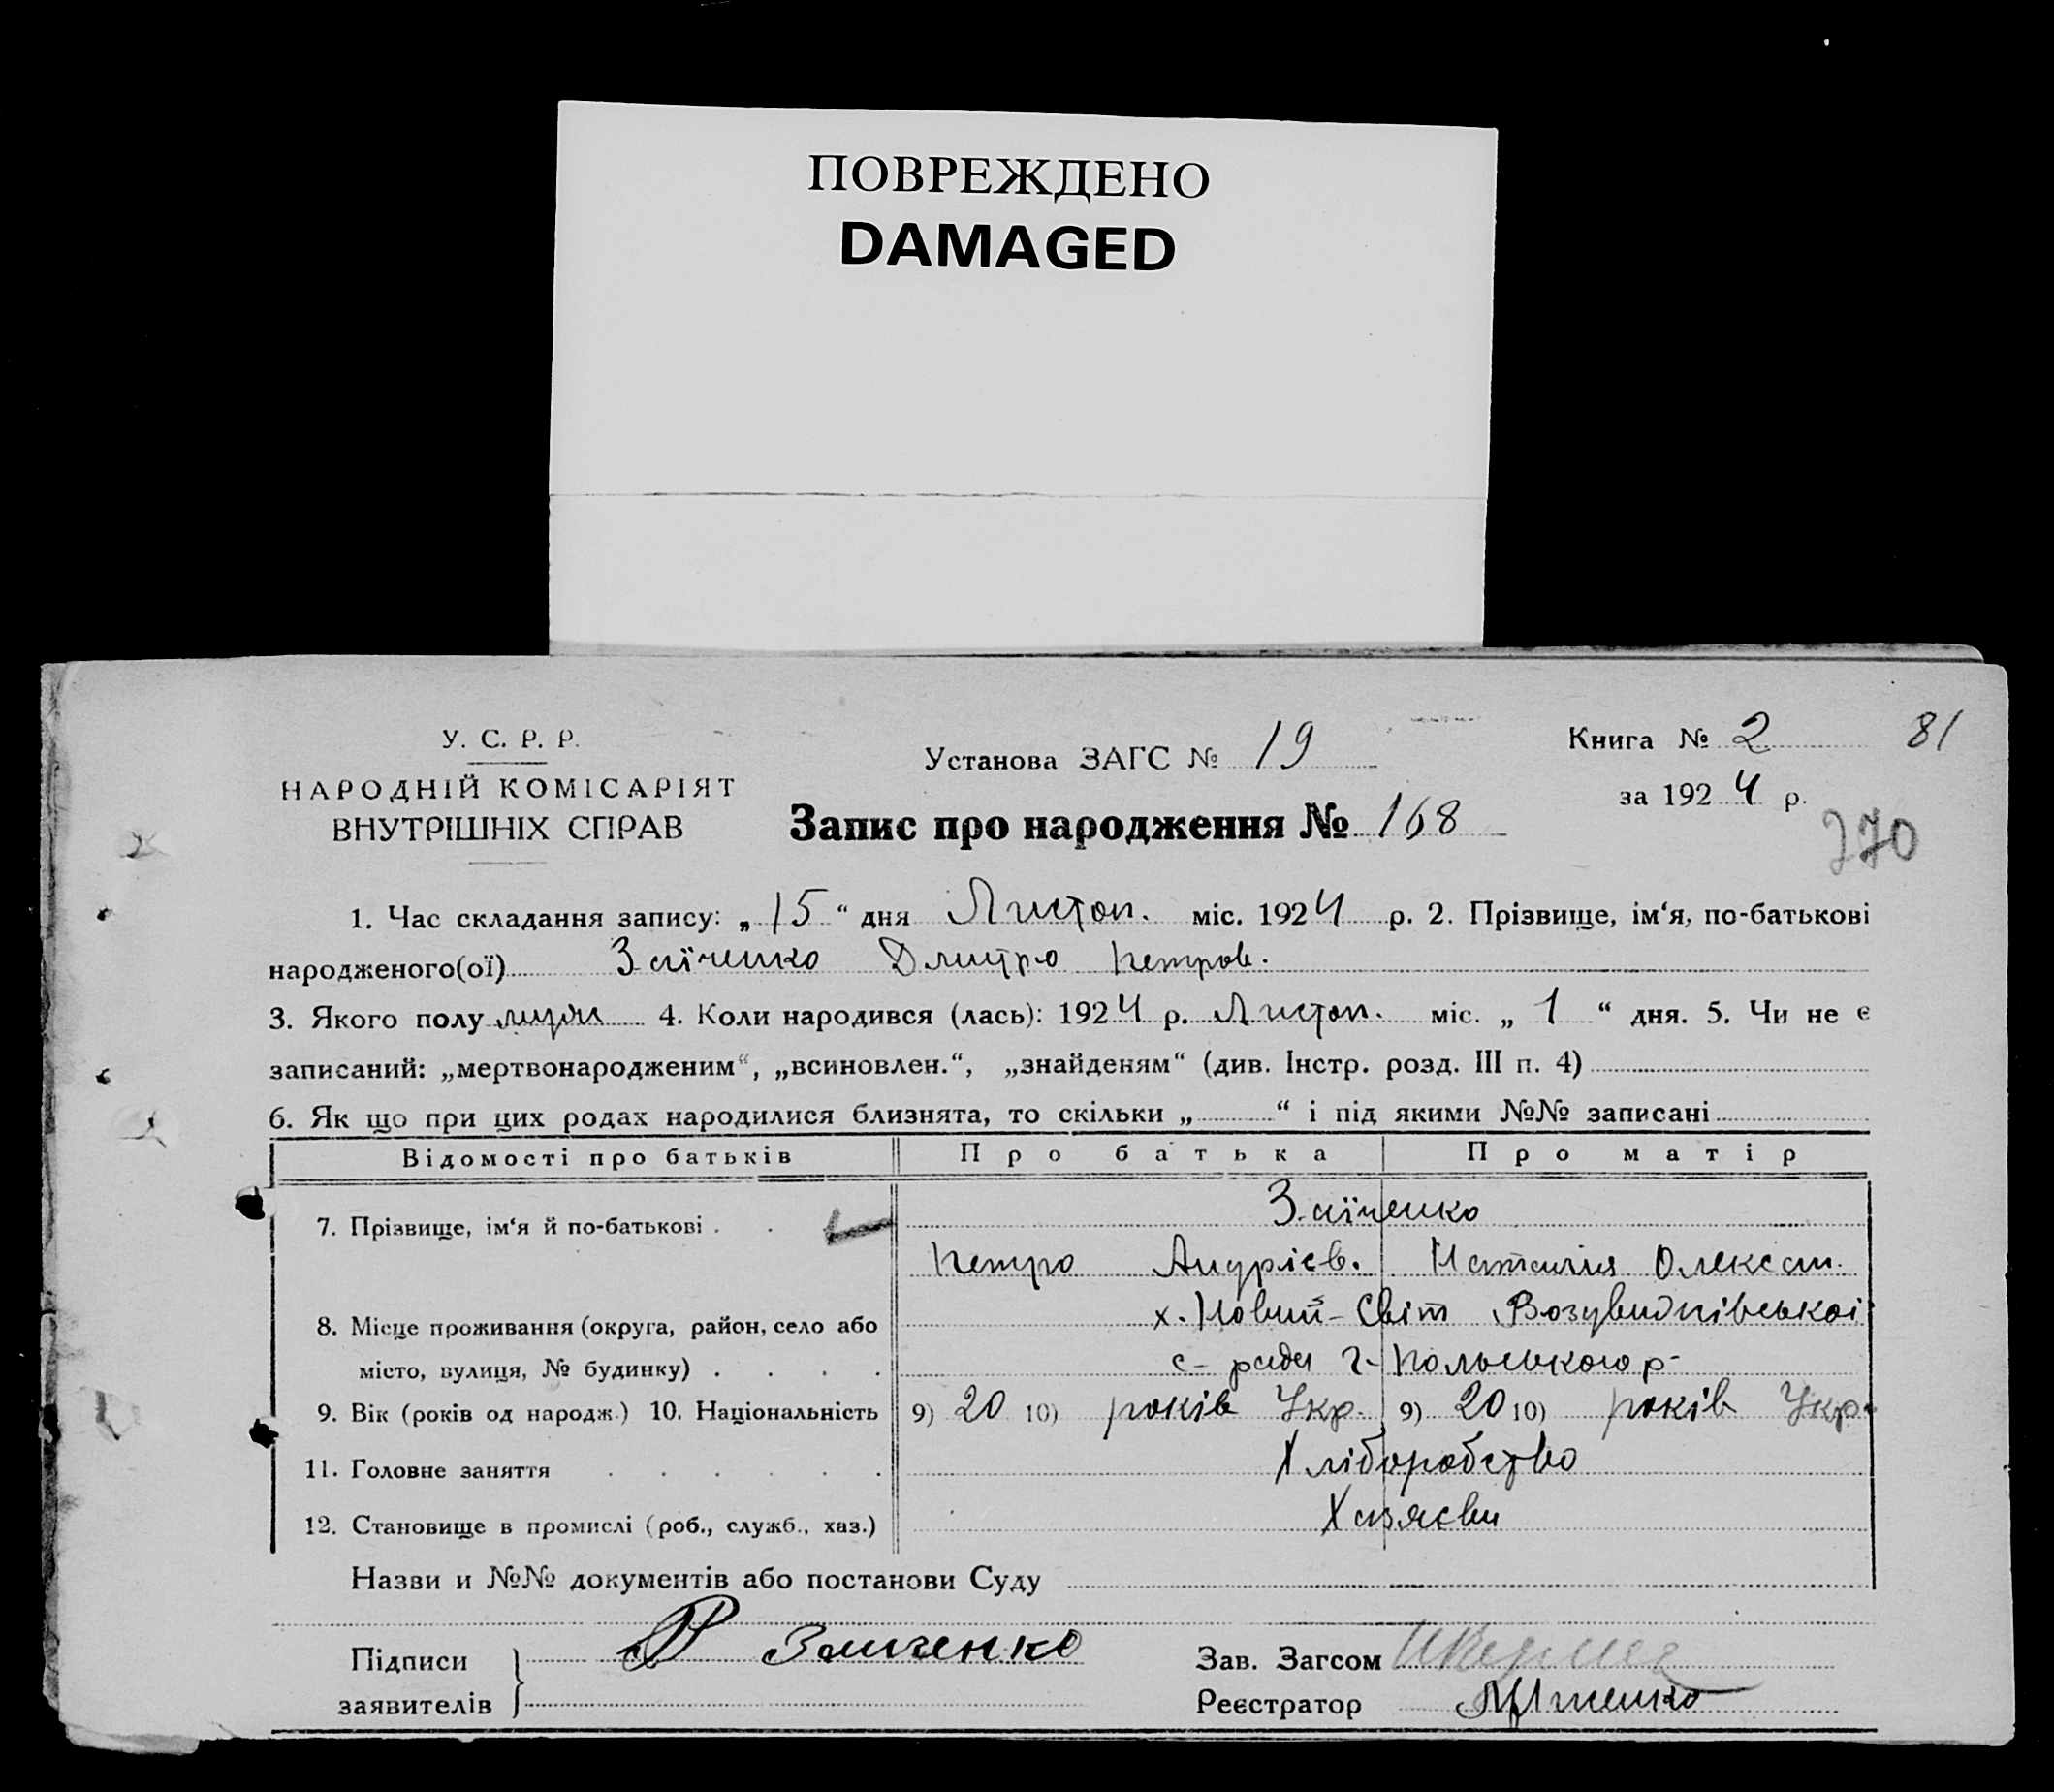 ПОВРЕЖДЕНО
DAMAGED
У. С. Р. Р.
НАРОДНІЙ КОМІСАРІЯТ
ВНУТРІШНІХ СПРАВ
Установа ЗАГС № 19
Запис про народження № 168
Книга № 2
81
за 1924 р.
270
1. Час складання запису: „ 15 “ дня Листоп. міс. 1924 р. 2. Прізвище, ім‘я, по-батькові
народженого(ої) Заїченко Дмитро Петров.
3. Якого полу муж 4. Коли народився (лась): 1924 р. Листоп. міс. „ 1 “ дня. 5. Чи не є
записаний: „мертвонародженим“, „всиновлен.“, „знайденям“ (див. Інстр. розд. III п. 4)
6. Як що при цих родах народилися близнята, то скільки „ “ і під якими №№ записані
Відомості про батьків Про батька Про матір
Заїченко
7. Прізвище, ім‘я й по-батькові .
Петро Андрієв. Наталія Олексан.
х. Новий-Світ Возувидпівської
8. Місце проживання (округа, район, село або
місто, вулиця, № будинку) . . . . с- ради г- Польського р-
9. Вік (років од народж.) 10. Національність 9) 20 10) років Укр. 9) 20 10) років Укр.
11. Головне заняття . . . . . . Хліборобство
12. Становище в промислі (роб., служб., хаз.) Хазяєви
Назви и №№ документів або постанови Суду
Підписи заявителів Заиченко
Зав. Загсом
Реєстратор